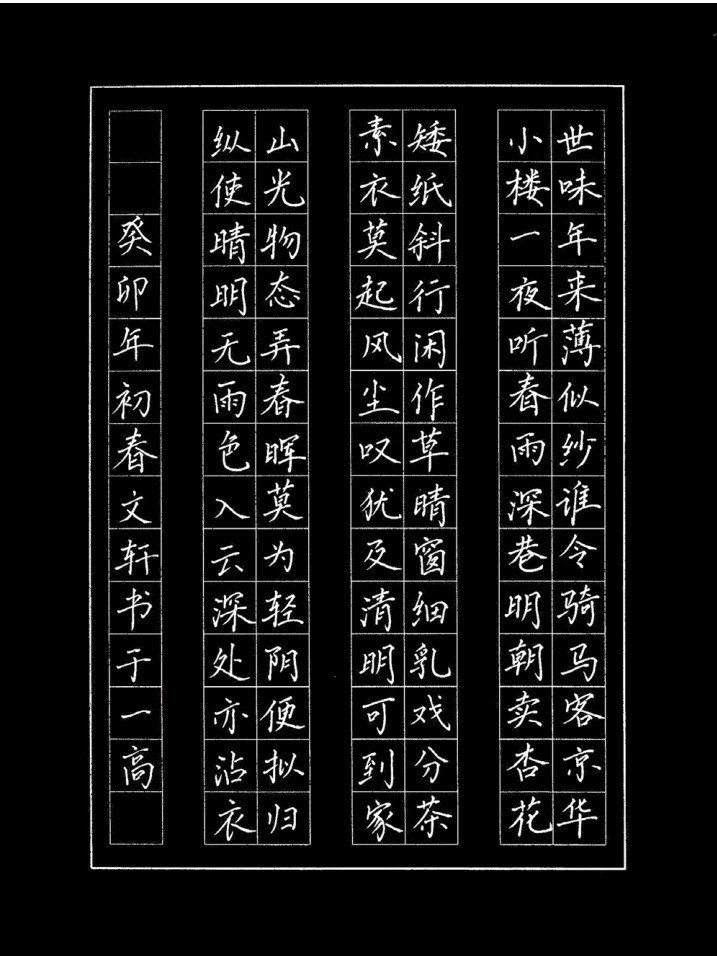 世味年来薄似纱谁令骑马客京华
小楼一夜听春雨深巷明朝卖杏花
矮纸斜行闲作草晴窗细乳戏分茶
素衣莫起风尘叹犹及清明可到家
山光物态弄春晖莫为轻阴便拟归
纵使晴明无雨色入云深处亦沾衣
癸卯年初春文轩书于一高